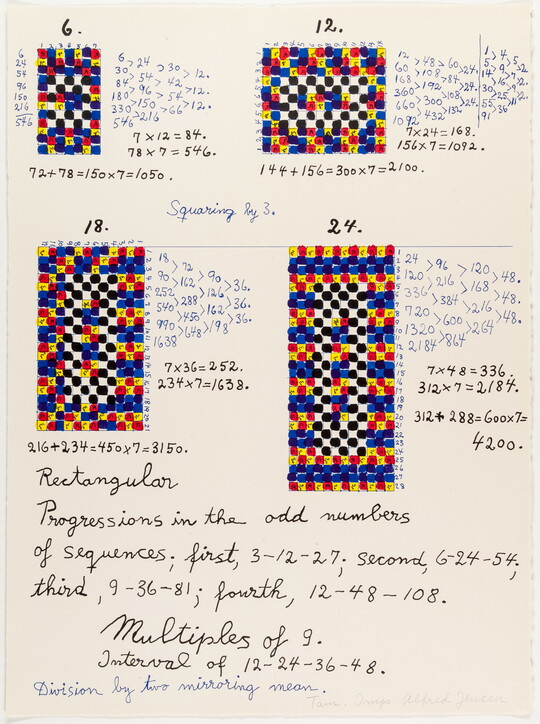 6.
12.
6
24
54
96
150
216
546
6 > 24
30 > 54 > 30 > 12.
84 > 96 > 42 > 12.
180 > 150 > 54 > 12.
330 > 216 > 66
546
7 x 12 = 84.
78 x 7 = 546.
72+78=150x7=1050.
12 > 48
60 > 108 > 60 > 24.
168 > 192 > 84 > 24.
360 > 300 > 108 > 24.
660 > 432 > 132
1092
7x24=168.
156x7=1092.
144+156=300x7=2100.
Squaring by 3.
18.
24.
18 > 72
90 > 162 > 90 > 36.
252 > 288 > 126 > 36.
540 > 450 > 162 > 36.
990 > 648 > 198
1638
7x36=252.
234x7=1638.
216+234=450x7=3150.
24 > 96
120 > 216 > 120 > 48.
336 > 384 > 168 > 48.
720 > 600 > 216 > 48.
1320 > 864 > 264
2184
7x48=336.
312x7=2184.
312+288=600x7=
4200.
Rectangular
Progressions in the odd numbers
of sequences; first, 3-12-27; second, 6-24-54;
third, 9-36-81; fourth, 12-48-108.
Multiples of 9.
Interval of 12-24-36-48.
Division by two mirroring mean.
Tam. Imp. Alfred Jensen